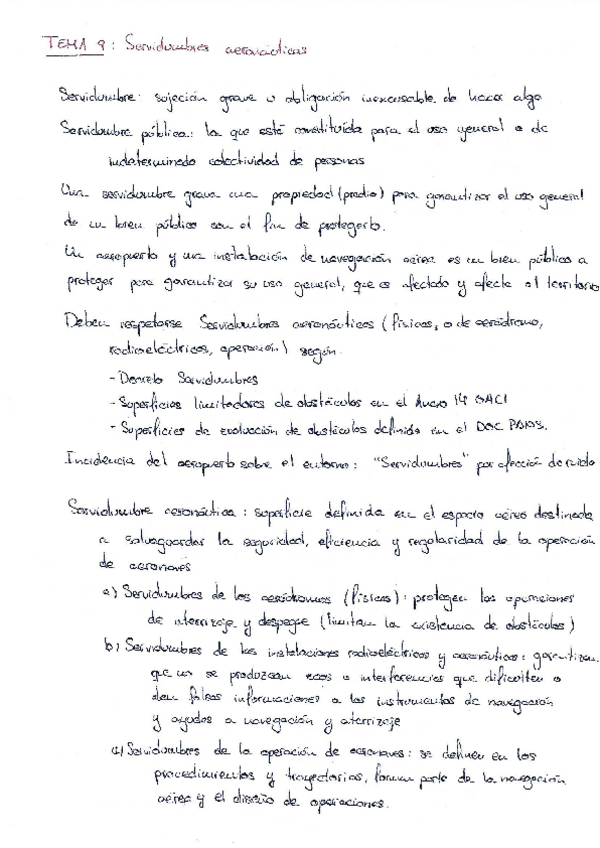 TEMA 9: Servidumbres aeronáuticas
Servidumbre: sujeción grave u obligación inexcusable de hacer algo
Servidumbre pública: la que está constituida para el uso general o de
indeterminada colectividad de personas
Una servidumbre grava una propiedad (predio) para garantizar el uso general
de un bien público con el fin de protegerlo.
Un aeropuerto y una instalación de navegación aérea es un bien público a
proteger para garantizar su uso general, que es afectado y afecta al territorio
Deben respetarse Servidumbres aeronáuticas (físicas, o de aeródromo,
radioeléctricas, operación) según.
- Decreto Servidumbres
- Superficies limitadoras de obstáculos en el Anexo 14 OACI
- Superficies de evaluación de obstáculos definida en el DOC PANS.
Incidencia del aeropuerto sobre el entorno: "Servidumbres" por afección de ruido
Servidumbre aeronáutica: superficie definida en el espacio aéreo destinada
a salvaguardar la seguridad, eficiencia y regularidad de la operación
de aeronaves
a) Servidumbres de los aeródromos (físicas): protegen las operaciones
de aterrizaje y despegue (limitan la existencia de obstáculos)
b) Servidumbres de las instalaciones radioeléctricas y aeronáuticas: garantizan
que no se produzcan ecos o interferencias que dificulten o
den falsas informaciones a los instrumentos de navegación
y ayudas a navegación y aterrizaje
c) Servidumbres de la operación de aeronaves: se definen en los
procedimientos y trayectorias, forman parte de la navegación
aérea y el diseño de operaciones.